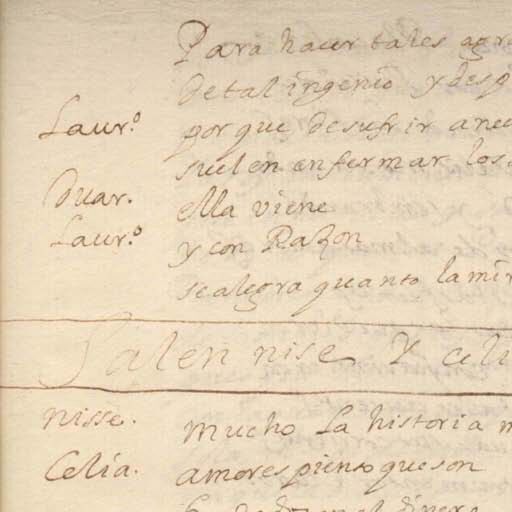 Para hacer tales agr
de tal ingenio y desp
Laur.º porque de sufrir a nec
suelen enfermar los
Duar. ella viene
Laur.º y con Razon
se alegra quanto la mir
Salen nise y celi
nisse. mucho la historia m
Celia. amores pienso que son